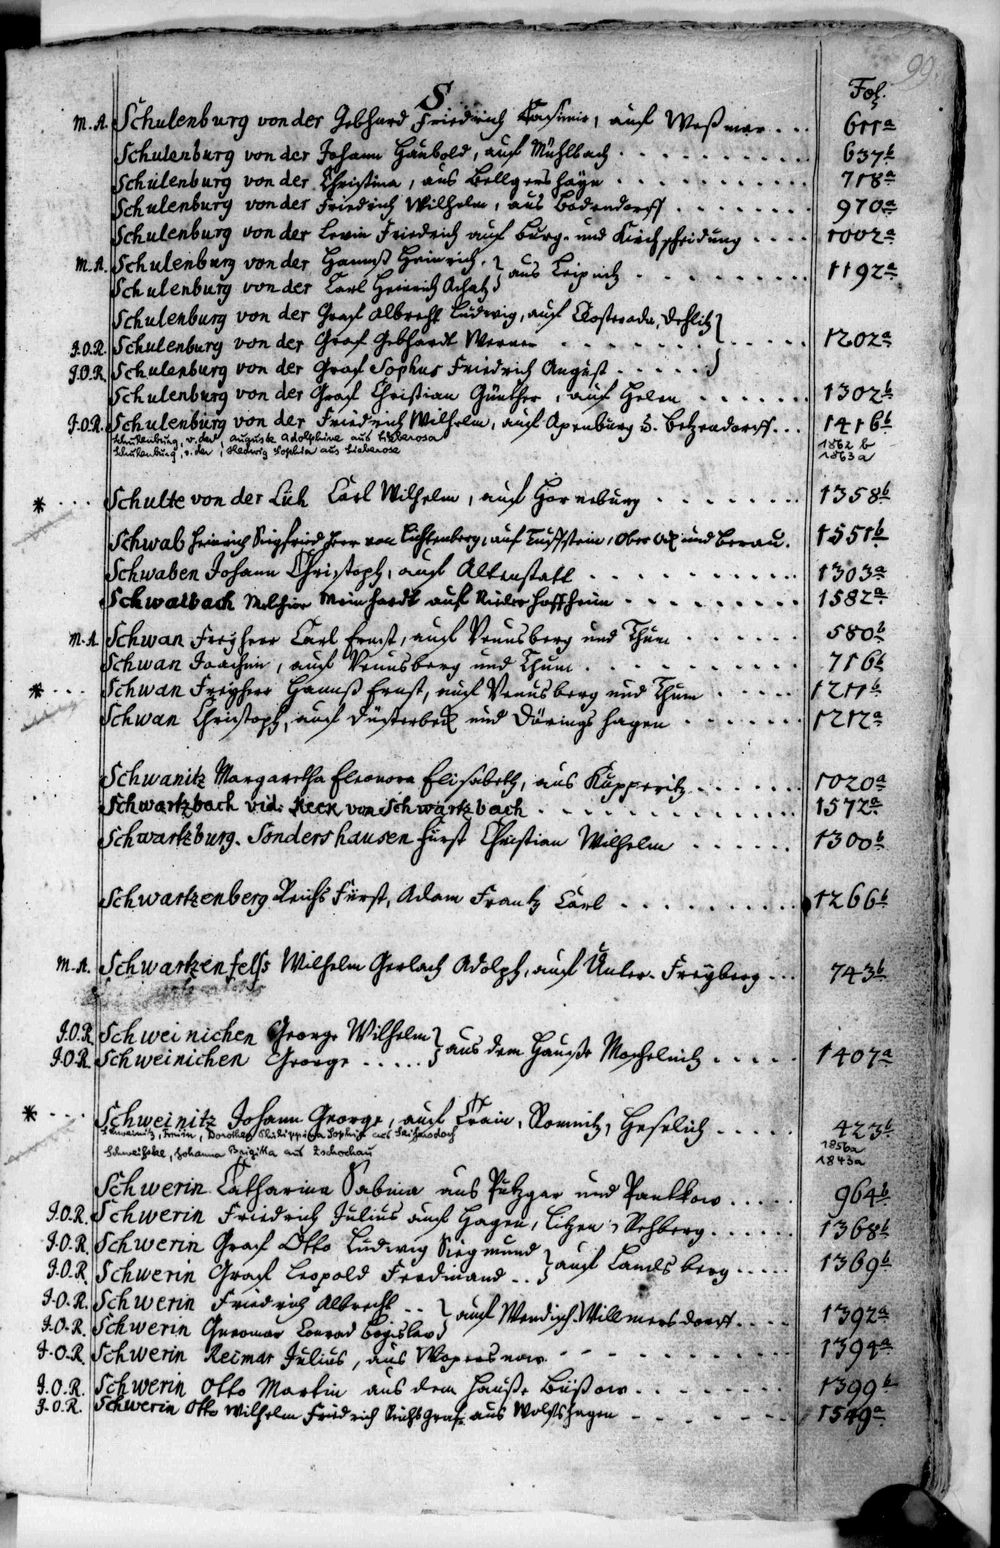 99.
S.
Fol.
M.A. Schulenburg von der Gebhard Friedrich Casimir, auf Weßmar ... 611a
Schulenburg von der Johann Haubold, auf Mühlbach ... 637b
Schulenburg von der Christina, aus Bellgershayn ... 718a
Schulenburg von der Friedrich Wilhelm, aus Bodendorff ... 970a
Schulenburg von der Levin Friedrich auf Burg- und Kirchscheidung ... 1002a
M.A. Schulenburg von der Hannß Heinrich,
Schulenburg von der Carl Heinrich Achatz } aus Leipzich ... 1192a
Schulenburg von der Graf Albrecht Ludwig, auf Klosteroda, Dehlitz
J.O.R. Schulenburg von der Graf Gebhardt Werner ... 1202a
J.O.R. Schulenburg von der Graf Sophus Friedrich August ...
Schulenburg von der Graf Christian Günther, auf Helen ... 1302b
J.O.R. Schulenburg von der Friedrich Wilhelm, auf Apenburg u. Betzendorff ... 1416b
Schulenburg, v. der, Auguste Adolphine aus Lieberosa 1862 b
Schulenburg, v. der, Hedwig Sophia aus Lieberose 1863 a
* ... Schulte von der Lüh Carl Wilhelm, auf Horneburg ... 1358b
Schwab Heinrich Siegfried Herr von Lichtenberg, auf Tuffstein, Ober und Berau. 1551b
Schwaben Johann Christoph, auf Altenstatt ... 1303a
Schwalbach Melchior Meinhardt auf Nieder Hoffheim ... 1582a
M.A. Schwan Freyherr Carl Ernst, auf Venusberg und Thum ... 580b
Schwan Joachim, auf Venusberg und Thum ... 716b
* ... Schwan Freyherr Hannß Ernst, auf Venusberg und Thum ... 1211b
Schwan Christoph, auf Düsterbeck und Döringshagen ... 1212a
Schwanitz Margaretha Eleonora Elisabeth, aus Kupperitz ... 1020a
Schwartzbach vid. Reck von Schwartzbach ... 1572a
Schwartzburg-Sondershausen Fürst Christian Wilhelm ... 1300b
Schwartzenberg Reichs Fürst, Adam Frantz Carl ... 1266b
M.A. Schwartzenfelß Wilhelm Gerlach Adolph, auf Unter-Freyberg ... 743b
J.O.R. Schweinichen George Wilhelm
J.O.R. Schweinichen George ... } aus dem Hauße Mochelnitz ... 1407a
* ... Schweinitz Johann George, auf Crain, Romnitz, Heselich ... 423b
Schweinitz, Dorothea Philippina Sophia aus Seifersdorf 1856a
Johanna Brigitta aus Zschochau 1843a
Schwerin Catharina Sabina aus Putzgar und Pantkow ... 964b
J.O.R. Schwerin Friedrich Julius auf Hagen, Litzen u. Rehberg ... 1368b
J.O.R. Schwerin Graf Otto Ludwig Siegmund
J.O.R. Schwerin Graf Leopold Ferdinand .. } auf Landsberg ... 1369b
J.O.R. Schwerin Friedrich Albrecht ..
J.O.R. Schwerin Conrad Bogislav } auf Wendisch-Willmersdorff ... 1392a
J.O.R. Schwerin Reimar Julius, aus Wopersnow ... 1394a
J.O.R. Schwerin Otto Martin aus dem Hauße Büßow ... 1399b
J.O.R. Schwerin Otto Wilhelm Friedrich Reichs Graf aus Wolfshagen ... 1549a